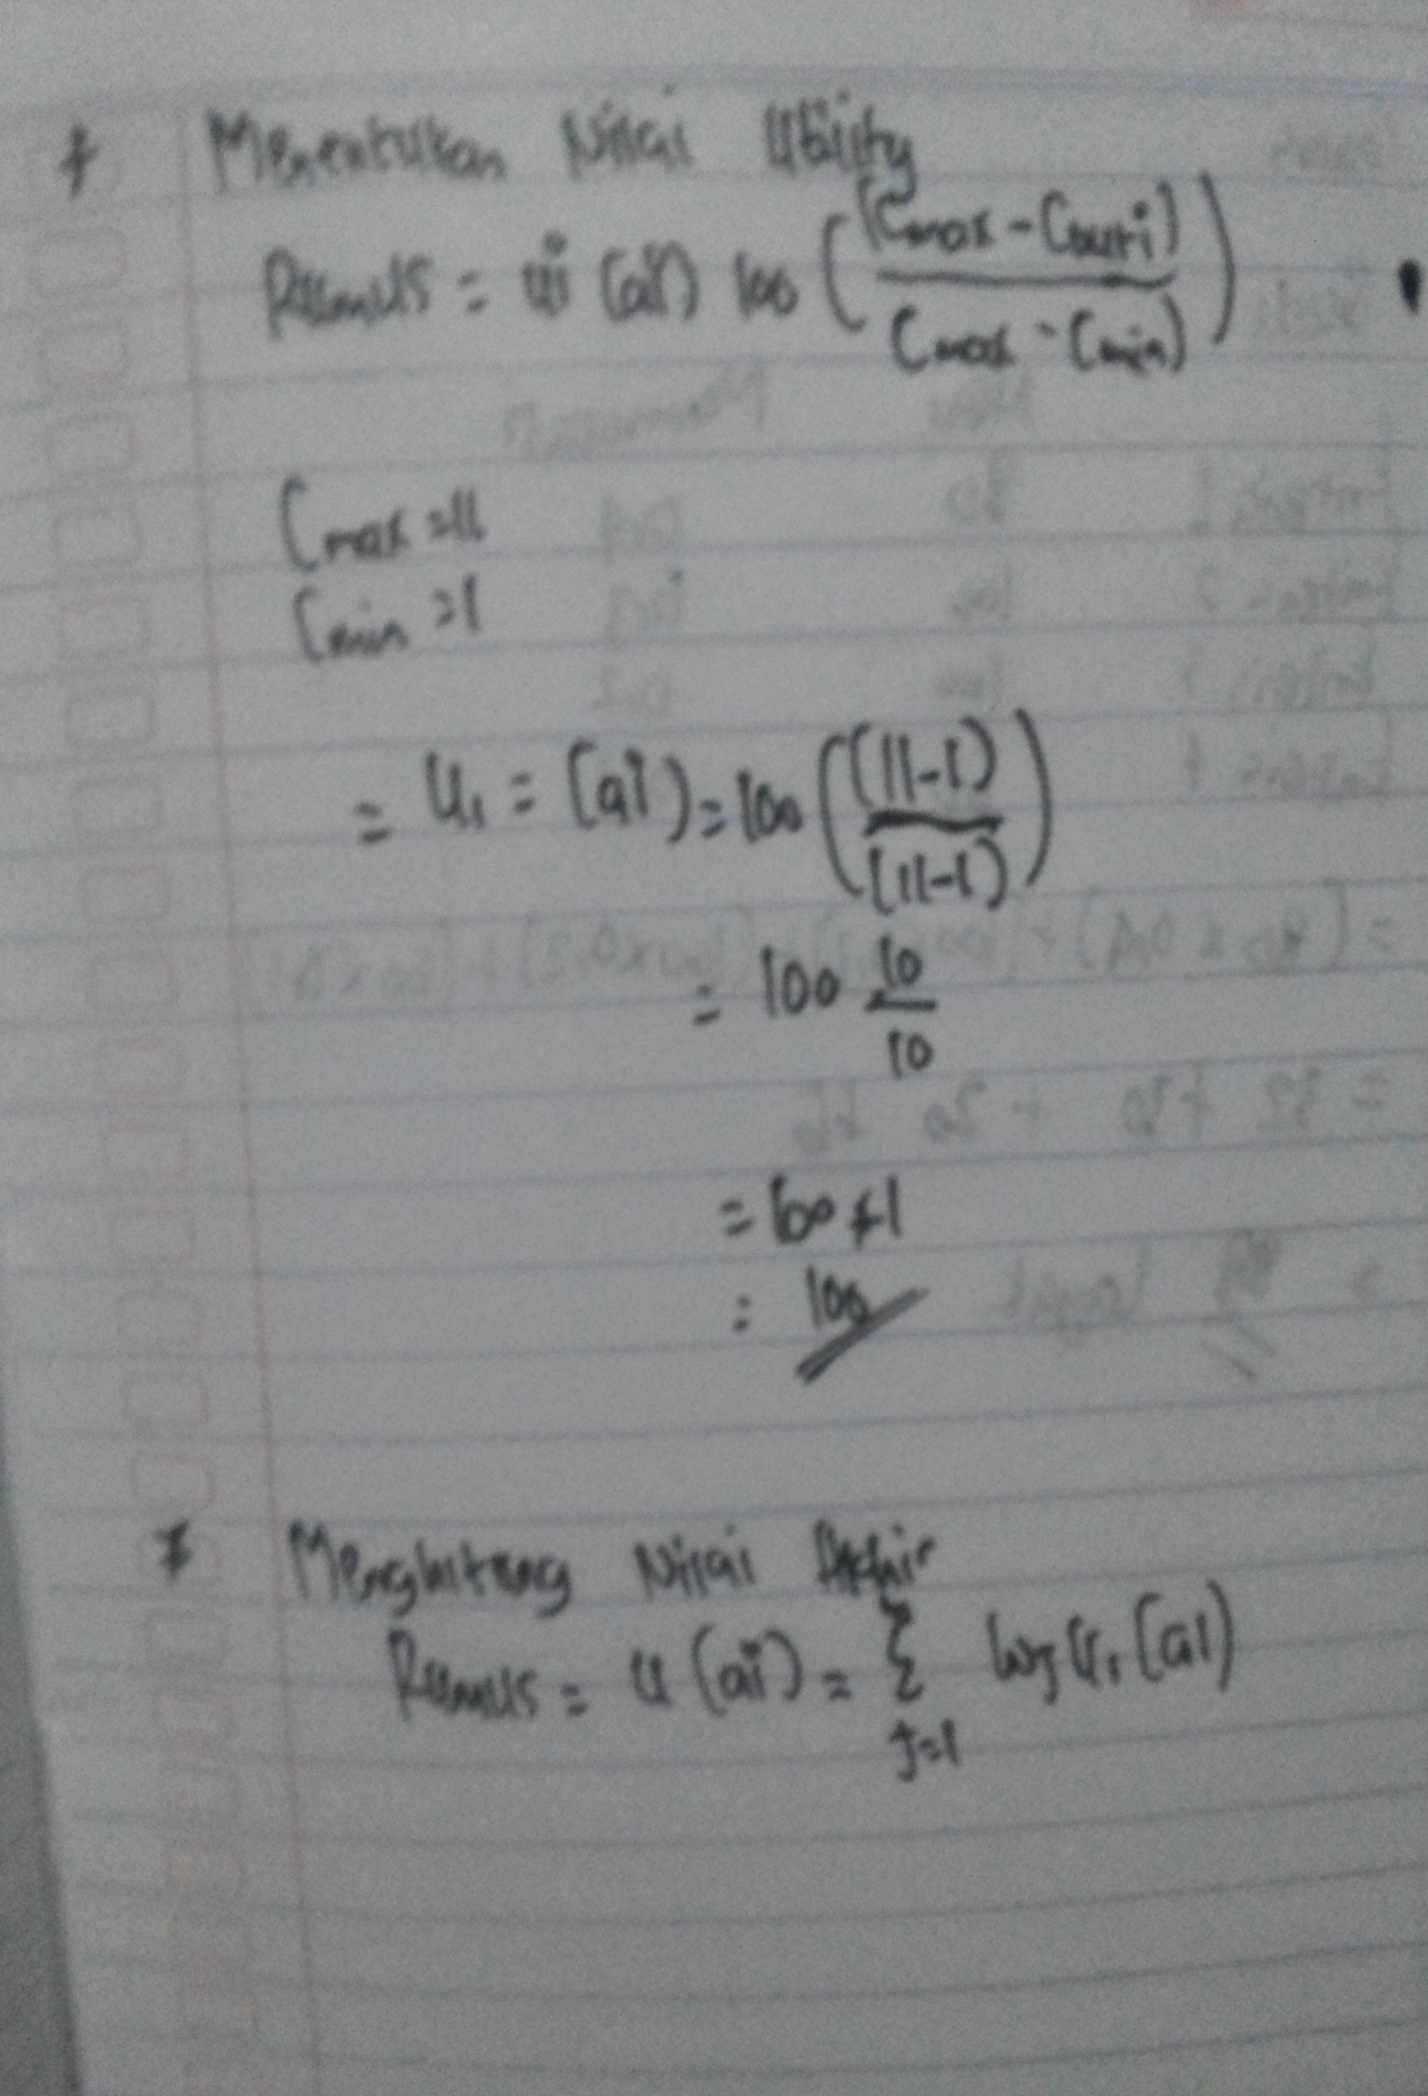 * Menentukan Nilai Utility
Rumus = ui (ai) 100 ((Cmax - Couti) / (Cmax - Cmin))
Cmax = 11
Cmin = 1
= U1 = (ai) = 100 ((11-1) / (11-1))
= 100 10/10
= 100 x 1
= 100
* Menghitung Nilai Akhir
Rumus = u (ai) = Σ j=1 wj U1 (a1)